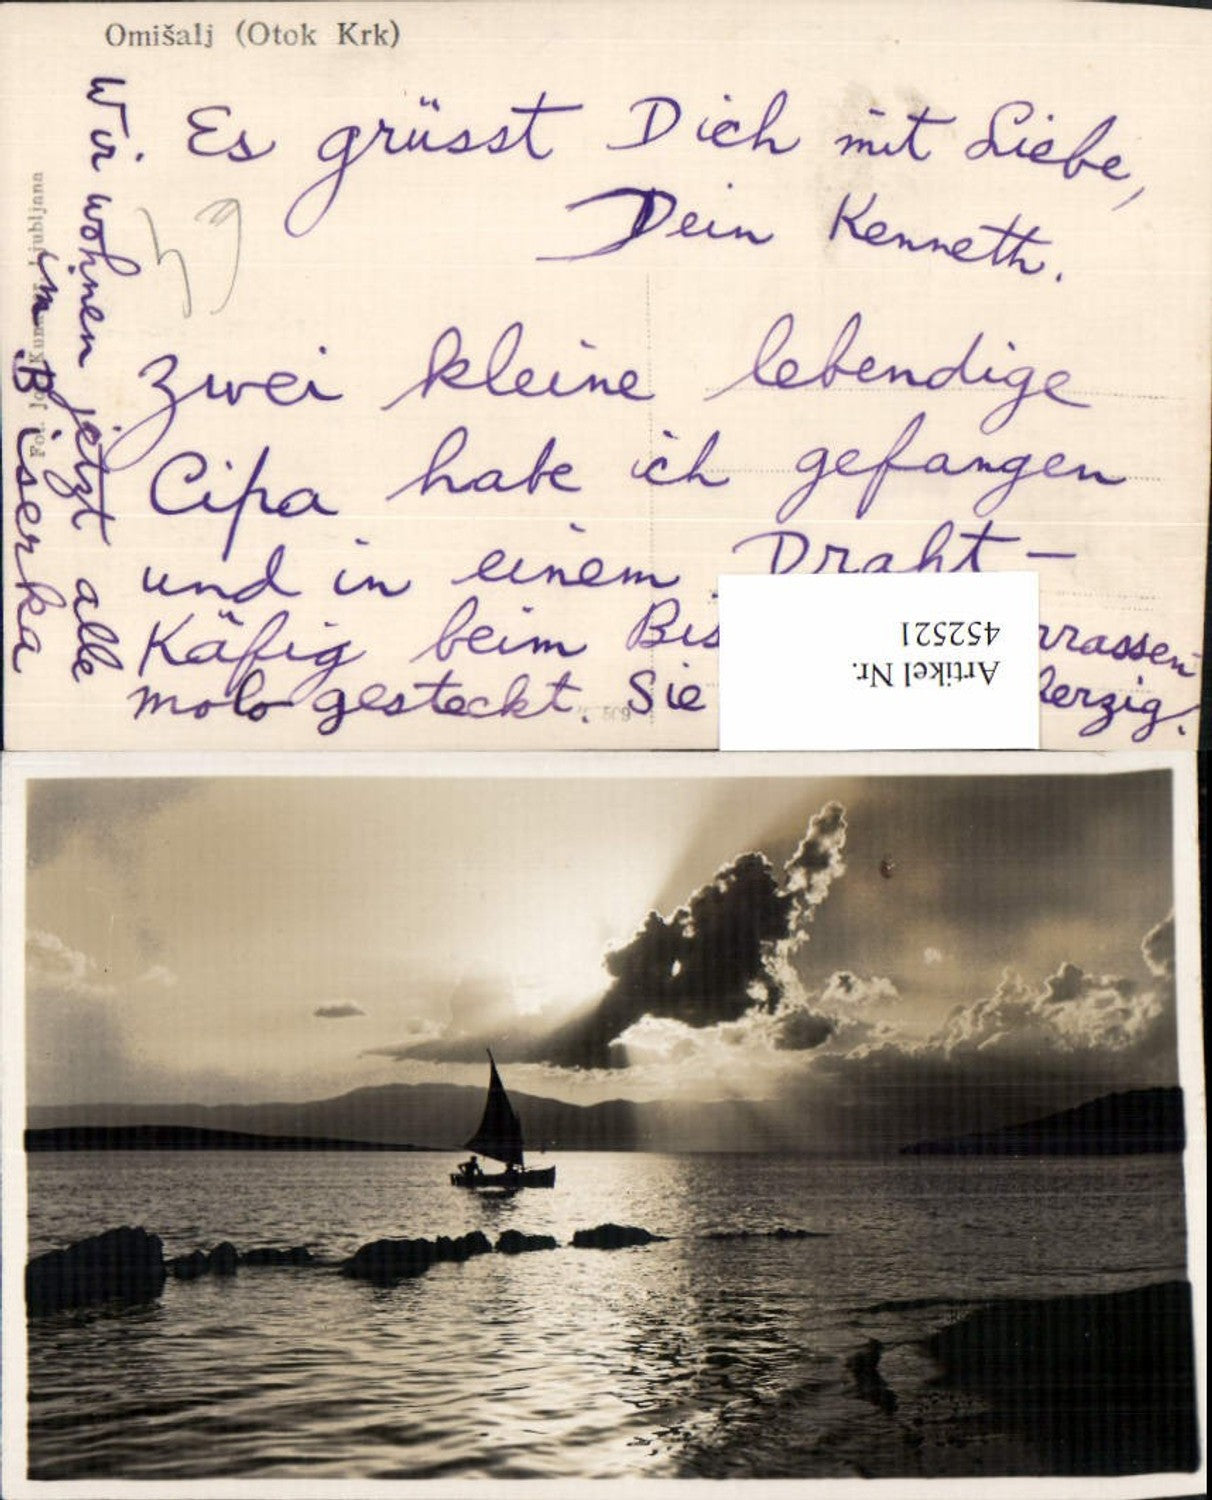 Omišalj (Otok Krk)
Es grüsst Dich mit Liebe,
Dein Kenneth.
zwei kleine lebendige
Cipa habe ich gefangen
und in einem Draht-
Käfig beim Bis rrassen-
molo gesteckt. Sie herzig.
Wir wohnen jetzt alle
im Biserka
Artikel Nr.
452521